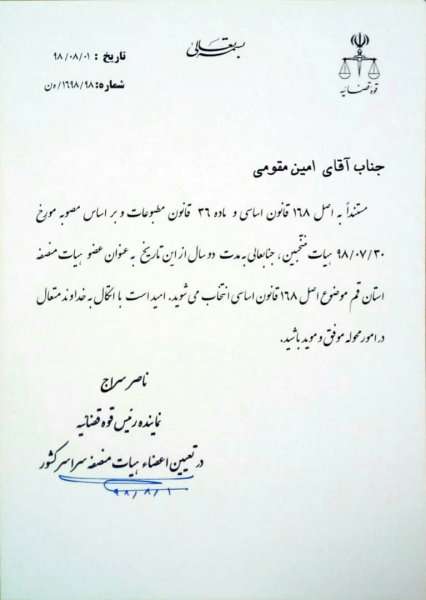 بسمه تعالی
قوه قضائیه
تاریخ : ۹۸/۰۸/۰۱
شماره: ۱۶۹۸/۹۸/ه‍ن
جناب آقای امین مقومی
مستنداً به اصل ۱۶۸ قانون اساسی و ماده ۳۶ قانون مطبوعات و بر اساس مصوبه مورخ
۹۸/۰۷/۳۰ هیات منتخبین ، جنابعالی به مدت دو سال از این تاریخ به عنوان عضو هیات منصفه
استان قم موضوع اصل ۱۶۸ قانون اساسی انتخاب می شوید. امید است با اتکال به خداوند متعال
در امور محوله موفق و موید باشید.
ناصر سراج
نماینده رئیس قوه قضائیه
در تعیین اعضاء هیات منصفه سراسر کشور
۹۸/۸/۱